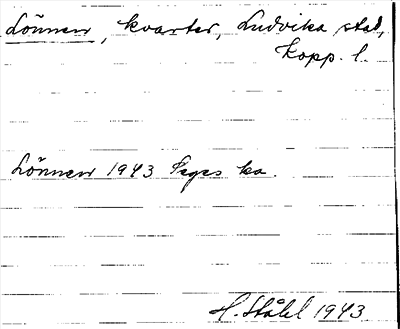 Lönnen, kvarter, Ludvika stad,
Kopp. l.
Lönnen 1943 ka.
H. Ståhl 1943